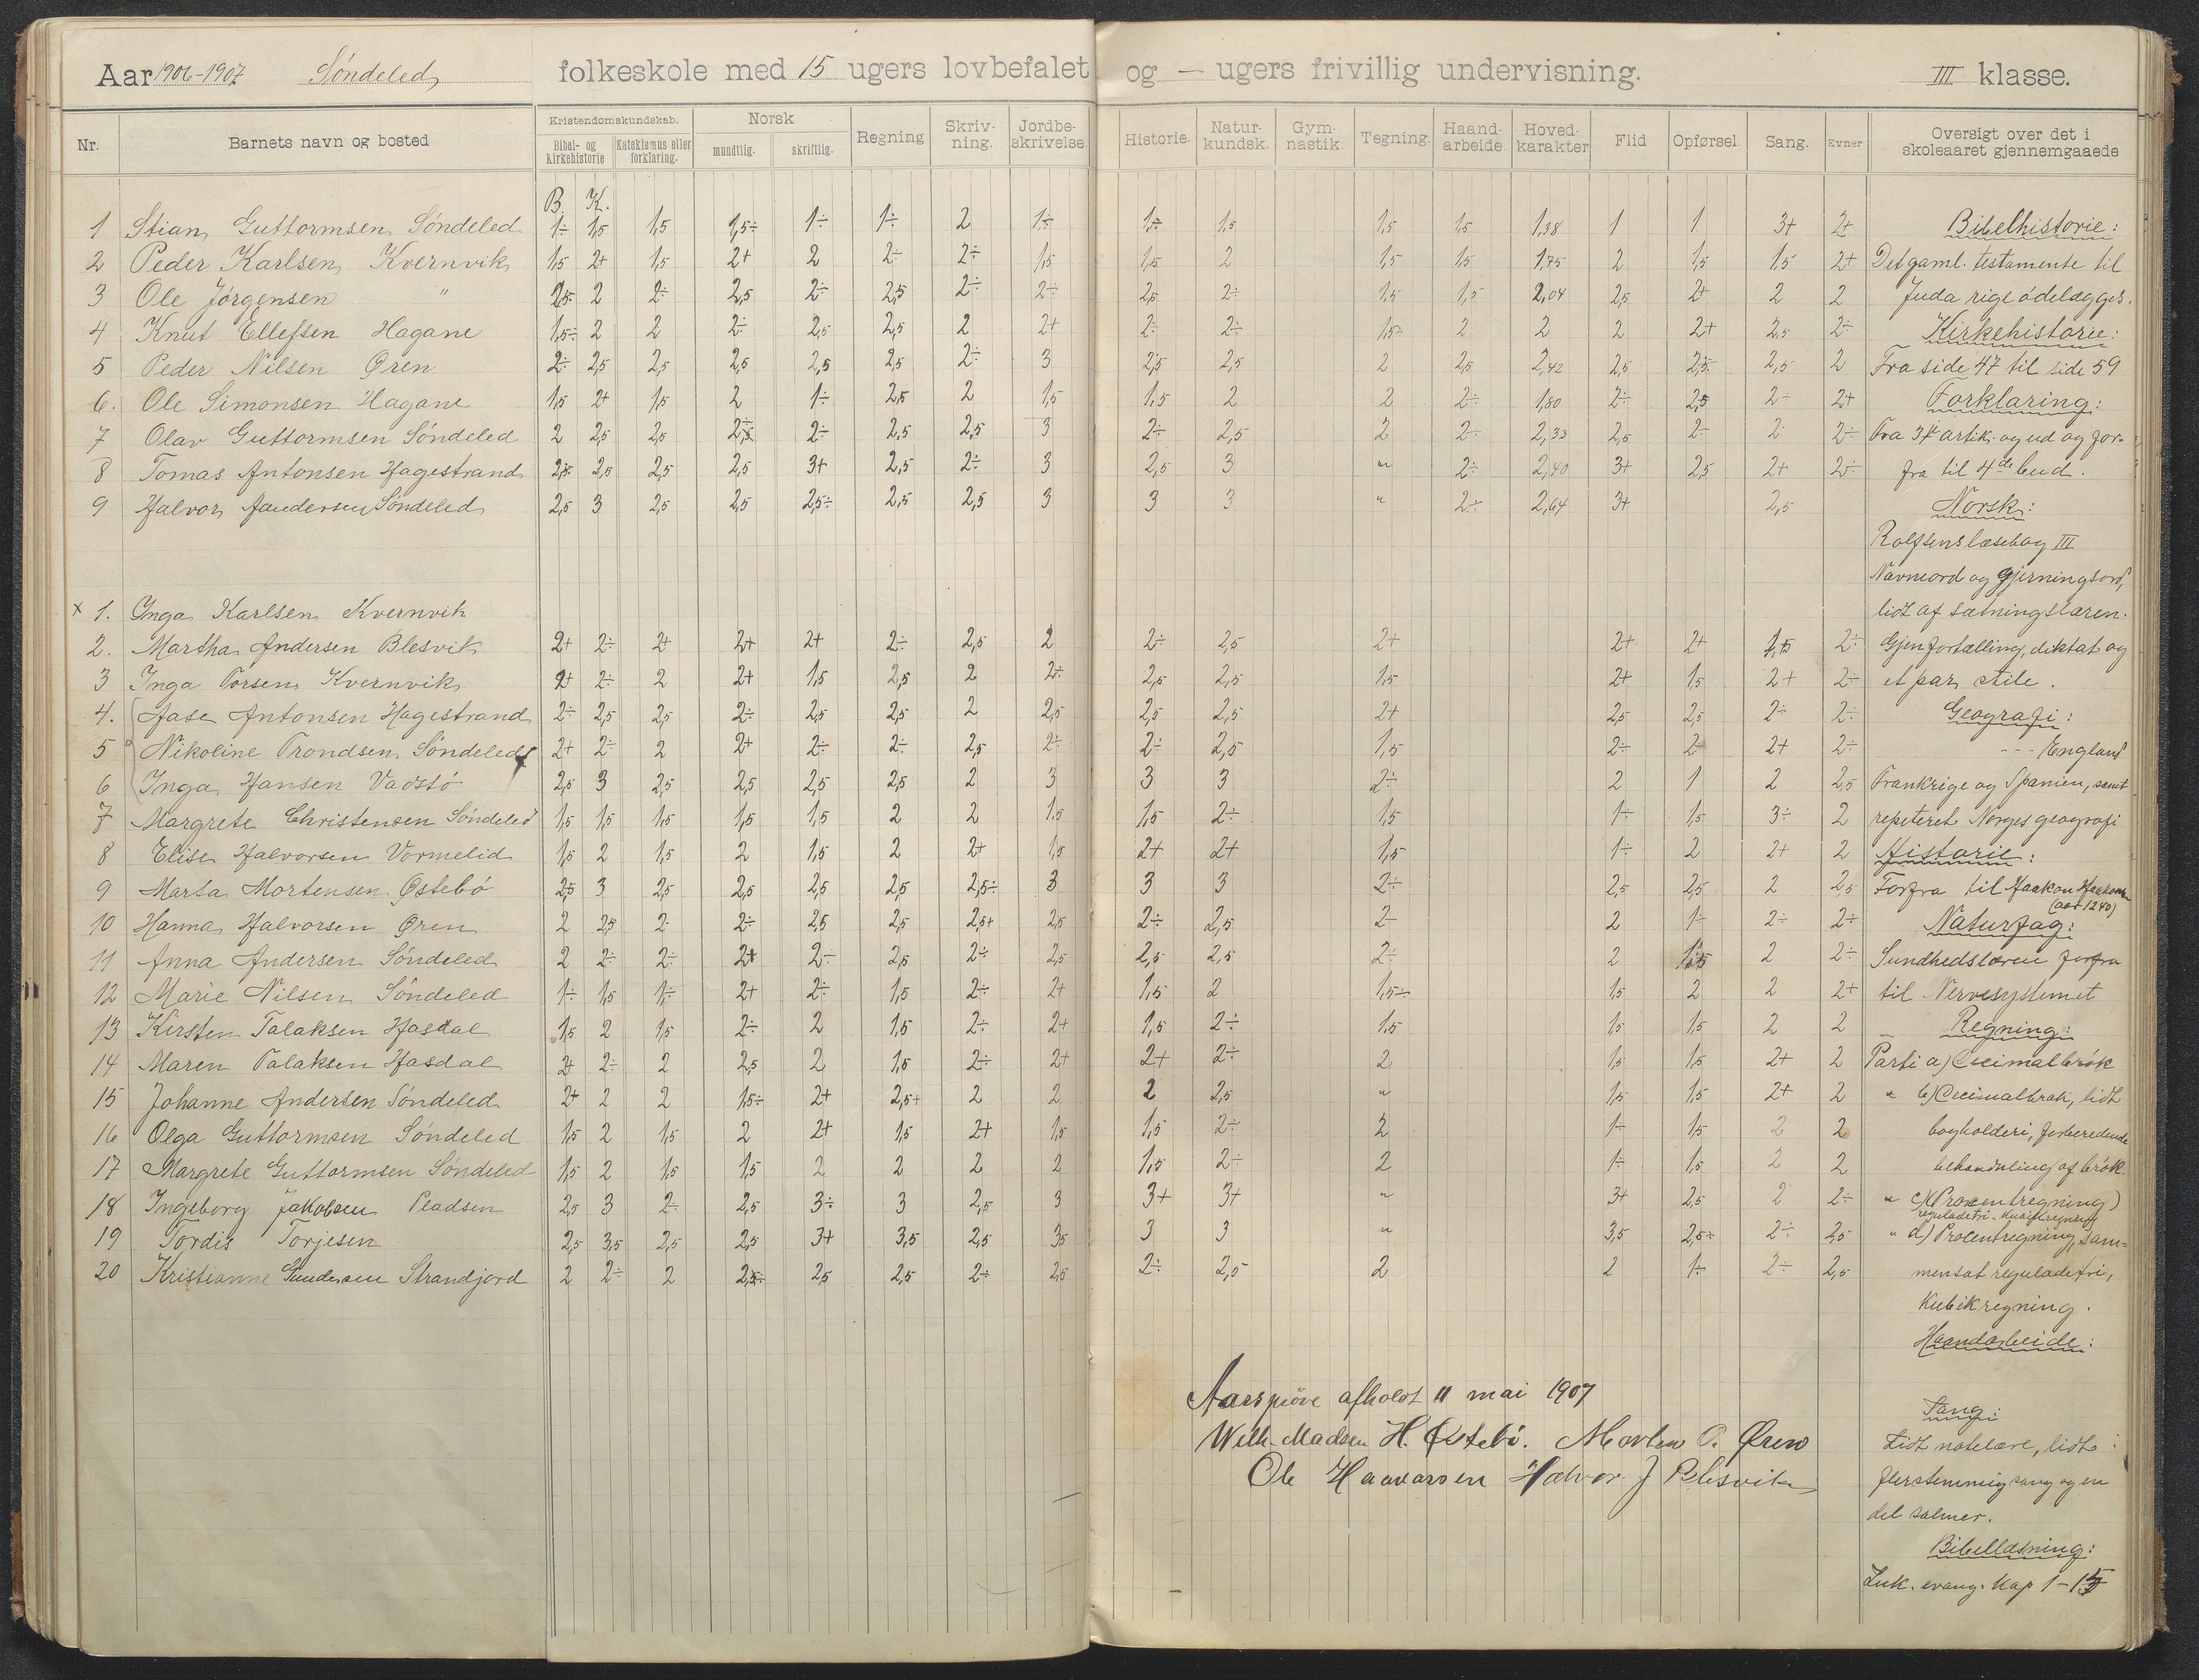 Aar 1906-1907 Söndeled folkeskole med 15 ugers lovbefalet og — ugers frivillig undervisning. III klasse.
Nr. Barnets navn og bosted Kristendomskundskab. Bibel- og kirkehistorie Katekismus eller forklaring. Norsk mundtlig. skriftlig. Regning Skrivning. Jordbeskrivelse. Historie. Naturkundsk. Gymnastik. Tegning. Haandarbeide. Hovedkarakter Flid Opførsel Sang. Evner Oversigt over det i skoleaaret gjennemgaaede
B. K.
1 Stian Guttormsen Söndeled 1÷ 1,5 1,5 1,5÷ 1÷ 1÷ 2 1÷ 1÷ 1,5 1,5 1,5 1,38 1 1 3+ 2+ Bibelhistorie:
2 Peder Karlsen Kvernvik 1,5 2+ 1,5 2+ 2 2÷ 2÷ 1,5 1,5 2 1,5 1,5 1,75 2 1,5 1,5 2+ Det gaml. testamente til
3 Ole Jörgensen " 2,5 2 2÷ 2,5 2÷ 2,5 2÷ 2÷ 2,5 2÷ 1,5 1,5 2,04 2,5 2+ 2 2 Juda rige ödelægges.
4 Knut Ellefsen Hagane 1,5÷ 2 2 2÷ 2,5 2,5 2 2+ 2÷ 2÷ 1,5÷ 2 2 2 2+ 2,5 2÷ Kirkehistorie:
5 Peder Nilsen Øren 2÷ 2,5 2,5 2,5 2,5 2,5 2÷ 3 2,5 2,5 2 2,5 2,42 2,5 2,5 2,5 2 Fra side 47 til side 59
6. Ole Simonsen Hagane 1,5 2+ 1,5 2 1÷ 2,5 2 1,5 1,5 2 2 2÷ 1,80 2÷ 2,5 2÷ 2+ Forklaring:
7 Olav Guttormsen Söndeled 2 2,5 2,5 2÷ 2÷ 2,5 2,5 3 2÷ 2,5 2 2÷ 2,33 2,5 2÷ 2 2÷ Fra 3die artik. og ud og for-
8 Tomas Antonsen Hagestrand 2,5 2,5 2,5 2,5 3+ 2,5 2÷ 3 2,5 3 " 2÷ 2,40 3+ 2,5 2+ 2÷ fra til 4de bud.
9 Halvor Aandersen Söndeled 2,5 3 2,5 2,5 2,5÷ 2,5 2,5 3 3 3 " 2÷ 2,64 3+ 2,5 Norsk:
Rolfsens læsebog III
Navneord og gjerningsord,
x 1. Inga Karlsen Kvernvik lidt af sætningslæren.
2. Martha Andersen Blesvik 2+ 2÷ 2+ 2+ 2+ 2÷ 2,5 2 2÷ 2,5 2+ 2+ 2+ 1,5 2÷ Gjenfortælling, diktat og
3 Inga Torsen Kvernvik 2+ 2÷ 2 2+ 1,5 2,5 2 2÷ 2,5 2,5 1,5 2+ 1,5 2+ 2÷ et par stile.
4. Aase Antonsen Hagestrand 2÷ 2,5 2,5 2÷ 2,5 2,5 2 2,5 2,5 2,5 2+ 2,5 2,5 2÷ 2÷ Geografi:
5 Nikoline Trondsen Söndeled 2+ 2÷ 2 2+ 2÷ 2÷ 2,5 2÷ 2÷ 2,5 1,5 2÷ 2 2+ 2÷ --- England
6 Inga Hansen Vadstö 2,5 3 2,5 2,5 2,5 2,5 2 3 3 3 2÷ 2 1 2 2,5 Frankrige og Spanien, samt
7 Margrete Christensen Söndeled 1,5 1,5 1,5 1,5 1,5 2 2 1,5 1,5 2÷ 1,5 1÷ 1,5 3÷ 2 repeteret Norges geografi
8 Elise Halvorsen Vormelid 1,5 2 1,5 2 1,5 2 2+ 1,5 2+ 2+ 1,5 1÷ 2 2+ 2 Historie:
9 Marta Mortensen Østebö 2,5 3 2,5 2,5 2,5 2,5 2,5÷ 3 3 3 2÷ 2,5 2,5 2 2,5 Forfra til Haakon Haakonsen (aar 1240)
10 Hanna Halvorsen Øren 2 2,5 2 2÷ 2,5 2,5 2,5+ 2,5 2÷ 2,5 2 2 1÷ 2÷ 2÷ Naturfag:
11 Anna Andersen Söndeled 2 2÷ 2÷ 2+ 2÷ 2,5 2÷ 2,5 2,5 2,5 2÷ 2 1,5 2 2÷ Sundhedslæren forfra
12 Marie Nilsen Söndeled 1÷ 1,5 1÷ 2+ 2÷ 1,5 2÷ 2+ 1,5 2 1,5÷ 1,5 2 2 2+ til Nervesystemet
13 Kirsten Talaksen Hasdal 1,5 2 1,5 2÷ 2 1,5 2÷ 2+ 1,5 2÷ 1,5 1,5 1,5 2 2 Regning:
14 Maren Talaksen Hasdal 2+ 2÷ 2 2,5 2 1,5 2÷ 2+ 2+ 2÷ 2 1,5 1,5 2+ 2 Parti a) Decimalbrök
15 Johanne Andersen Söndeled 2+ 2 2 1,5÷ 2+ 2,5+ 2 2 2 2,5 " 1,5 1,5 2+ 2 " b) Decimalbrøk, lidt
16 Olga Guttormsen Söndeled 1,5 2 1,5 2 2+ 1,5 2+ 1,5 1,5 2÷ 2 1÷ 1,5 2 2 bogholderi, forberedende
17 Margrete Guttormsen Söndeled 1,5 2 1,5 1,5 2 2 2 2 1,5 2÷ 2 1÷ 1,5 2 2 behandling af brök.
18 Ingeborg Jakobsen Pladsen 2,5 3 2÷ 2,5 3÷ 3 2,5 3 3+ 3+ " 3+ 2,5 2 2÷ " c) (Procentregning) reguladetri - kubikregning
19 Tordis Torjesen 2,5 3,5 2,5 2,5 3+ 3,5 2,5 3,5 3 3 " 3,5 2,5÷ 2÷ 2,5 " d) Procentregning, sam=
20 Kristianne Gundersen Strandjord 2 2÷ 2 2,5÷ 2,5 2,5 2÷ 2,5 2÷ 2,5 2 2 1÷ 2÷ 2,5 mensat reguladetri,
Kubikregning.
Haandarbeide:
Aarspröve afholdt 11 mai 1907
Sang:
Wilh. Madsen H. Østebö. Morten O. Øren
Lidt notelære, lidt
Ole Haavorsen Halvor J Blesvik
flerstemmig sang og en
del salmer.
Bibellæsning:
Luk. evang. Kap 1-15